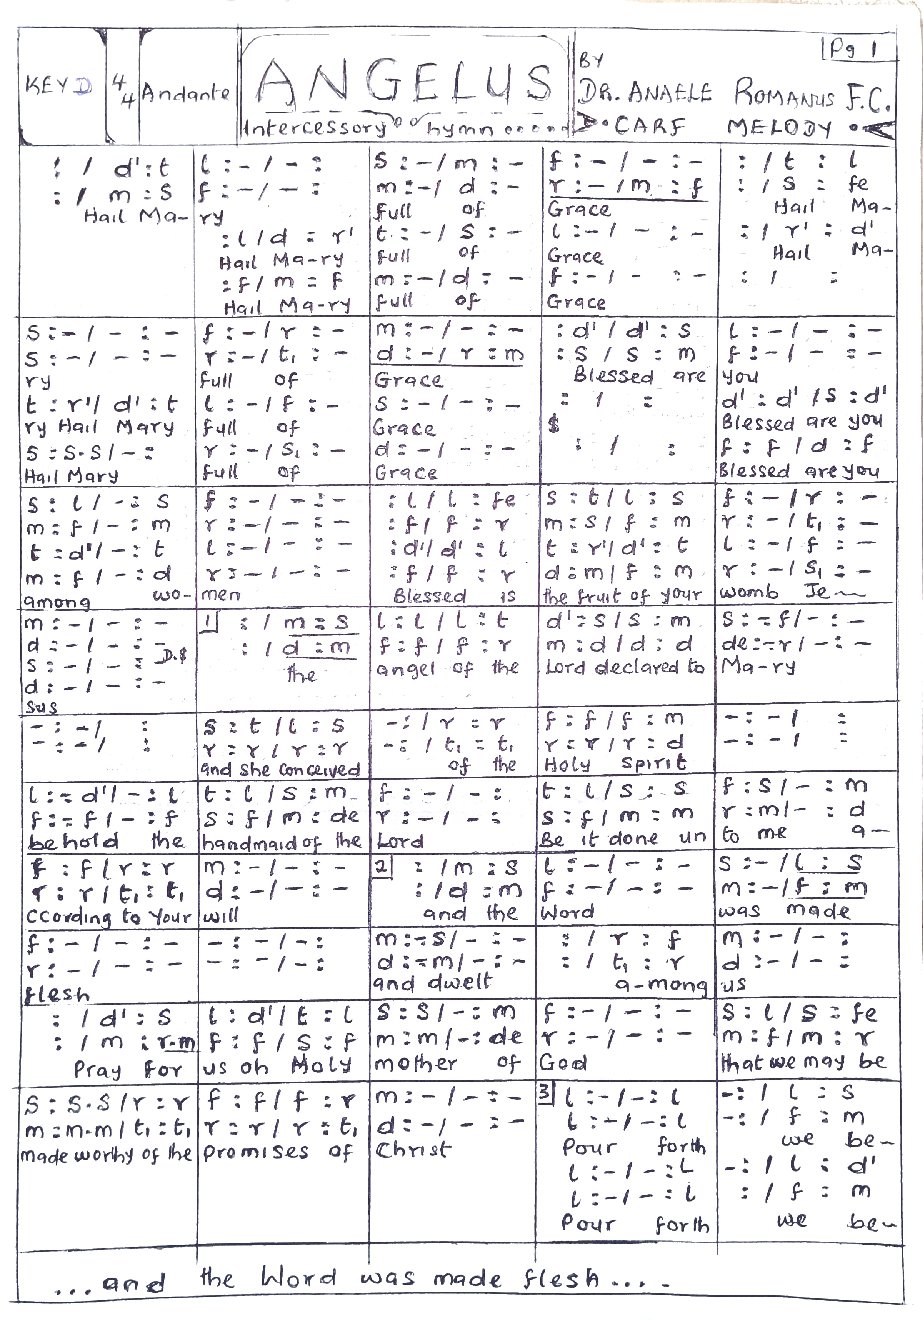 KEY D
4/4
Andante
ANGELUS
Intercessory hymn
Pg 1
BY
DR. ANAELE ROMANUS F.C.
CARF MELODY
: / d' : t
: / m : s
Hail Ma-
l : - / - :
f : - / - :
ry
: l / d : r'
Hail Ma-ry
: f / m : f
Hail Ma-ry
s : - / m : -
m : - / d : -
full of
t : - / s : -
full of
m : - / d : -
full of
f : - / - : -
r : - / m : f
Grace
l : - / - : -
Grace
f : - / - : -
Grace
: / t : l
: / s : fe
Hail Ma-
: / r' : d'
Hail Ma-
: / :
s : - / - : -
s : - / - : -
ry
t : r' / d' : t
ry Hail Mary
s : s.s / - :
Hail Mary
f : - / r : -
r : - / t₁ : -
full of
l : - / f : -
full of
r : - / s₁ : -
full of
m : - / - : -
d : - / r : m
Grace
s : - / - : -
Grace
d : - / - : -
Grace
: d' / d' : s
: s / s : m
Blessed are
: / :
$
: / :
l : - / - : -
f : - / - : -
you
d' : d' / s : d'
Blessed are you
f : f / d : f
Blessed are you
s : l / - : s
m : f / - : m
t : d' / - : t
m : f / - : d
among wo-
f : - / - : -
r : - / - : -
l : - / - : -
r : - / - : -
men
: l / l : fe
: f / f : r
: d' / d' : l
: f / f : r
Blessed is
s : t / l : s
m : s / f : m
t : r' / d' : t
d : m / f : m
the fruit of your
f : - / r : -
r : - / t₁ : -
l : - / f : -
r : - / s₁ : -
womb Je~
m : - / - : -
d : - / - : -
s : - / - : -
d : - / - : -
D.$
sus
1 : / m : s
: / d : m
the
l : l / l : t
f : f / f : r
angel of the
d' : s / s : m
m : d / d : d
Lord declared to
s : - f / - : -
de : - r / - : -
Ma-ry
- : - / :
- : - / :
s : t / l : s
r : r / r : r
and she conceived
- : / r : r
- : / t₁ : t₁
of the
f : f / f : m
r : r / r : d
Holy Spirit
- : - / :
- : - / :
l : - d' / - : l
f : - f / - : f
behold the
t : l / s : m
s : f / m : de
handmaid of the
f : - / - :
r : - / - :
Lord
t : l / s : s
s : f / m : m
Be it done un
f : s / - : m
r : m / - : d
to me a-
f : f / r : r
r : r / t₁ : t₁
ccording to Your
m : - / - : -
d : - / - : -
will
2 : / m : s
: / d : m
and the
l : - / - : -
f : - / - : -
Word
s : - / l : s
m : - / f : m
was made
f : - / - : -
r : - / - : -
flesh
- : - / - :
- : - / - :
m : - s / - : -
d : - m / - : -
and dwelt
: / r : f
: / t₁ : r
a-mong
m : - / - :
d : - / - :
us
: / d' : s
: / m : r-m
Pray for
l : d' / t : l
f : f / s : f
us oh Holy
s : s / - : m
m : m / - : de
mother of
f : - / - : -
r : - / - : -
God
s : l / s : fe
m : f / m : r
that we may be
s : s.s / r : r
m : m.m / t₁ : t₁
made worthy of the
f : f / f : r
r : r / r : t₁
Promises of
m : - / - : -
d : - / - : -
Christ
3 l : - / - : l
l : - / - : l
Pour forth
l : - / - : l
l : - / - : l
Pour forth
- : / l : s
- : / f : m
we be~
- : / l : d'
: / f : m
we be~
...and the Word was made flesh....